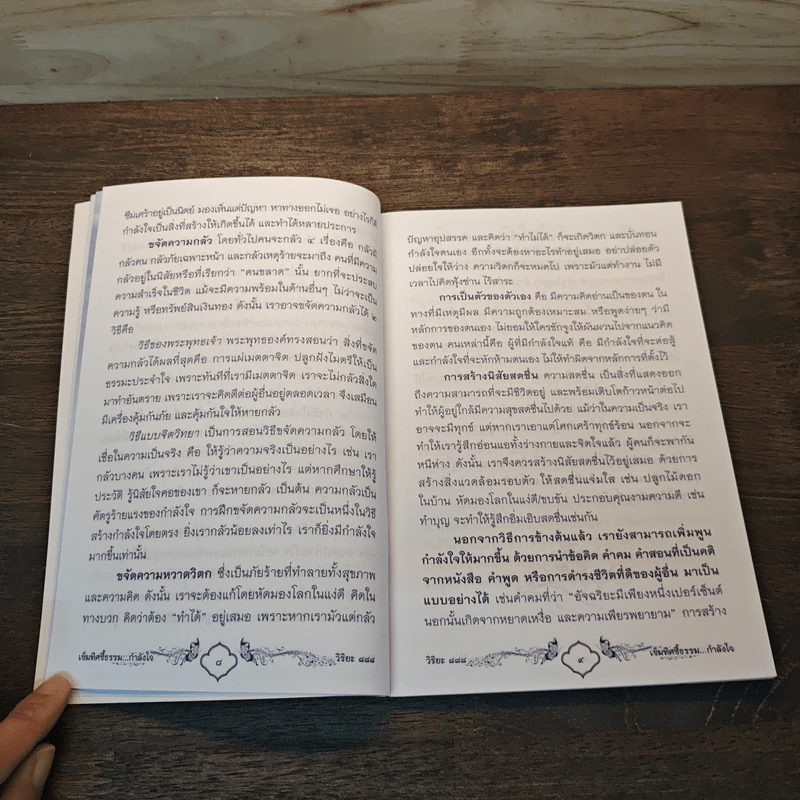 ซึมเศร้าอยู่เป็นนิตย์ มองเห็นแต่ปัญหา หาทางออกไม่เจอ อย่างไรก็ดี
กำลังใจเป็นสิ่งที่สร้างให้เกิดขึ้นได้ และทำได้หลายประการ
ขจัดความกลัว โดยทั่วไปคนจะกลัว ๔ เรื่องคือ กลัวผี
กลัวคน กลัวภัยเฉพาะหน้า และกลัวเหตุร้ายจะมาถึง คนที่มีความ
กลัวอยู่ในนิสัยหรือที่เรียกว่า "คนขลาด" นั้น ยากที่จะประสบ
ความสำเร็จในชีวิต แม้จะมีความพร้อมในด้านอื่นๆ ไม่ว่าจะเป็น
ความรู้ หรือทรัพย์สินเงินทอง ดังนั้น เราอาจขจัดความกลัวได้ ๒
วิธีคือ
วิธีของพระพุทธเจ้า พระพุทธองค์ทรงสอนว่า สิ่งที่ขจัด
ความกลัวได้ผลที่สุดคือ การแผ่เมตตาจิต ปลูกฝังไมตรีให้เป็น
ธรรมะประจำใจ เพราะทันทีที่เรามีเมตตาจิต เราจะไม่กลัวสิ่งใด
มาทำอันตราย เพราะเราจะคิดดีต่อผู้อื่นอยู่ตลอดเวลา จึงเสมือน
มีเครื่องคุ้มกันภัย และคุ้มกันใจให้หายกลัว
วิธีแบบจิตวิทยา เป็นการสอนวิธีขจัดความกลัว โดยให้
เชื่อในความเป็นจริง คือ ให้รู้ว่าความจริงเป็นอย่างไร เช่น เรา
กลัวบางคน เพราะเราไม่รู้ว่าเขาเป็นอย่างไร แต่หากศึกษาให้รู้
ประวัติ รู้นิสัยใจคอของเขา ก็จะหายกลัว เป็นต้น ความกลัวเป็น
ศัตรูร้ายแรงของกำลังใจ การฝึกขจัดความกลัวจะเป็นหนึ่งในวิธี
สร้างกำลังใจโดยตรง ยิ่งเรากลัวน้อยลงเท่าไร เราก็ยิ่งมีกำลังใจ
มากขึ้นเท่านั้น
ขจัดความหวาดวิตก ซึ่งเป็นภัยร้ายที่ทำลายทั้งสุขภาพ
และความคิด ดังนั้น เราจะต้องแก้โดยหัดมองโลกในแง่ดี คิดใน
ทางบวก คิดว่าต้อง "ทำได้" อยู่เสมอ เพราะหากเรามัวแต่กลัว
เข็มทิศชี้ธรรม...กำลังใจ ๘ วิริยะ ๘๘๘
ปัญหาอุปสรรค และคิดว่า "ทำไม่ได้" ก็จะเกิดวิตก และบั่นทอน
กำลังใจตนเอง อีกทั้งจะต้องหาอะไรทำอยู่เสมอ อย่าปล่อยตัว
ปล่อยใจให้ว่าง ความวิตกก็จะหมดไป เพราะมัวแต่ทำงาน ไม่มี
เวลาไปคิดฟุ้งซ่าน ไร้สาระ
การเป็นตัวของตัวเอง คือ มีความคิดอ่านเป็นของตน ใน
ทางที่มีเหตุมีผล มีความถูกต้องเหมาะสม หรือพูดง่ายๆ ว่ามี
หลักการของตนเอง ไม่ยอมให้ใครชักจูงให้ผันผวนไปจากแนวคิด
ของตน คนเหล่านี้คือ ผู้ที่มีกำลังใจแท้ คือ มีกำลังใจที่จะต่อสู้
และกำลังใจที่จะหักห้ามตนเอง ไม่ให้ทำผิดจากหลักการที่ตั้งไว้
การสร้างนิสัยสดชื่น ความสดชื่น เป็นสิ่งที่แสดงออก
ถึงความสามารถที่จะมีชีวิตอยู่ และพร้อมเติบโตก้าวหน้าต่อไป
ทำให้ผู้อยู่ใกล้มีความสุขสดชื่นไปด้วย แม้ว่าในความเป็นจริง เรา
อาจจะมีทุกข์ แต่หากเราเอาแต่โศกเศร้าทุกข์ร้อน นอกจากจะ
ทำให้เรารู้สึกอ่อนแอทั้งร่างกายและจิตใจแล้ว ผู้คนก็จะพากัน
หนีห่าง ดังนั้น เราจึงควรสร้างนิสัยสดชื่นไว้อยู่เสมอ ด้วยการ
สร้างสิ่งแวดล้อมรอบตัว ให้สดชื่นแจ่มใส เช่น ปลูกไม้ดอก
ในบ้าน หัดมองโลกในแง่ดี/ขบขัน ประกอบคุณงามความดี เช่น
ทำบุญ จะทำให้รู้สึกอิ่มเอิบสดชื่นเช่นกัน
นอกจากวิธีการข้างต้นแล้ว เรายังสามารถเพิ่มพูน
กำลังใจให้มากขึ้น ด้วยการนำข้อคิด คำคม คำสอนที่เป็นคติ
จากหนังสือ คำพูด หรือการดำรงชีวิตที่ดีของผู้อื่น มาเป็น
แบบอย่างได้ เช่นคำคมที่ว่า "อัจฉริยะมีเพียงหนึ่งเปอร์เซ็นต์
นอกนั้นเกิดจากหยาดเหงื่อ และความเพียรพยายาม" การสร้าง
วิริยะ ๘๘๘ ๙ เข็มทิศชี้ธรรม...กำลังใจ